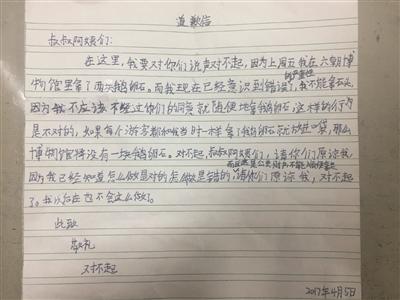 道歉信
叔叔阿姨们:
在这里,我要对你们说声对不起,因为上周五我在六朝博
物馆里拿了两块鹅卵石。而我现在已经意识到错误了,我不能拿石头,
的严重性
因为我不应该不经过你们的同意就随便地拿鹅卵石,这样的行为
是不对的,如果每个游客都和我当时一样拿了鹅卵石就放进口袋,那么
博物馆将没有一块鹅卵石。对不起,叔叔阿姨们,请你们原谅我,
而且这是公共财产不能随便拿走
因为我已经知道怎么做是对的怎么做是错的,请你们原谅我,对不起
了。我以后在也不会这么做了。
此致
敬礼
对不起
2017年4月5日